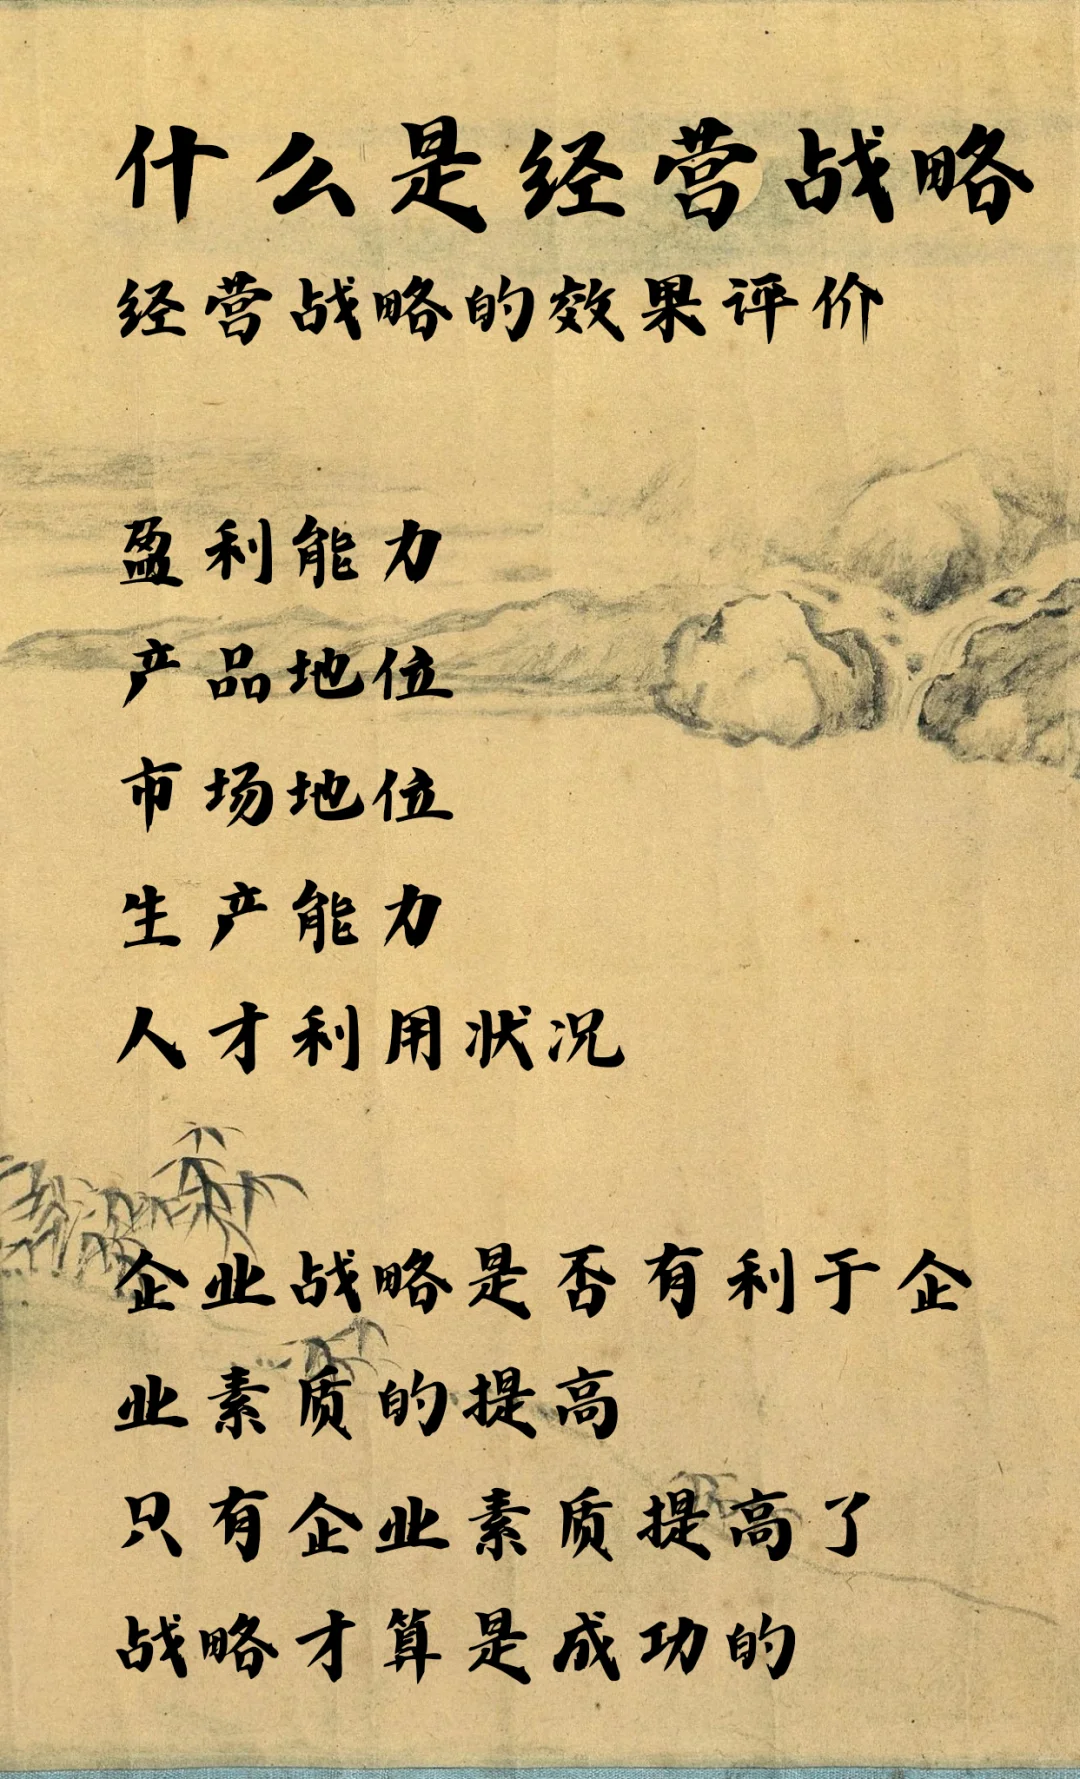 什么是经营战略
经营战略的效果评价
盈利能力
产品地位
市场地位
生产能力
人才利用状况
企业战略是否有利于企
业素质的提高
只有企业素质提高了
战略才算是成功的